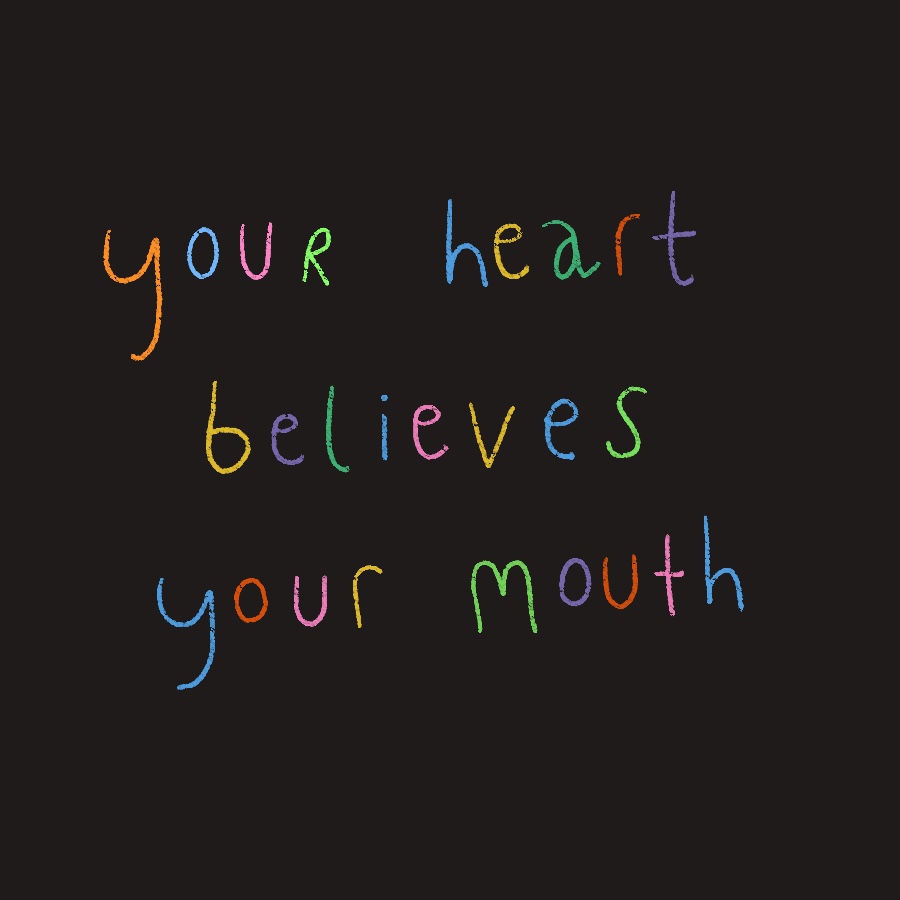 youR heart
believes
your mouth